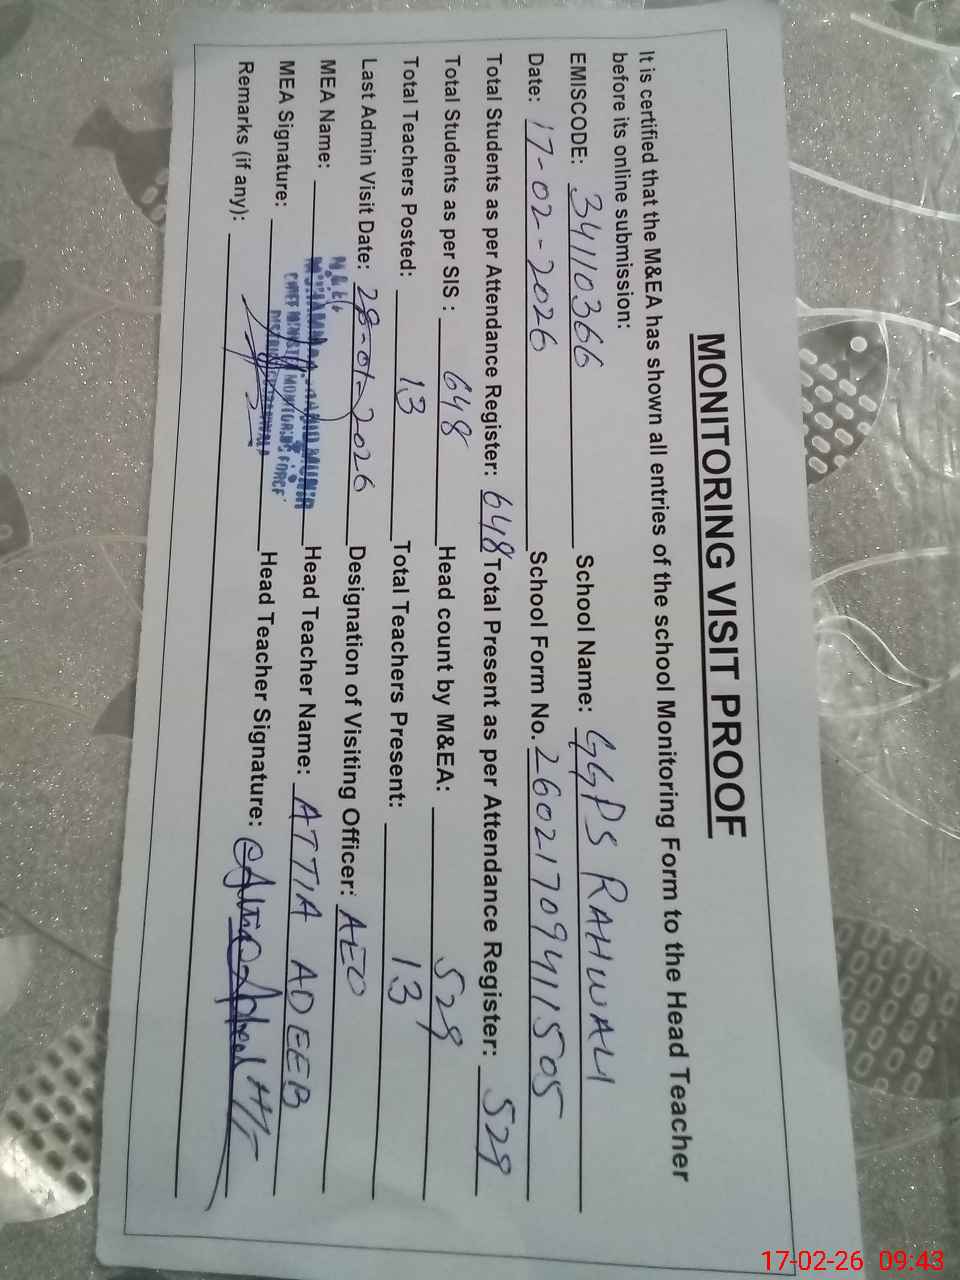 MONITORING VISIT PROOF
It is certified that the M&EA has shown all entries of the school Monitoring Form to the Head Teacher
before its online submission:
EMISCODE: 34110366 School Name: GGPS RAHWALI
Date: 17-02-2026 School Form No. 260217094111505
Total Students as per Attendance Register: 648 Total Present as per Attendance Register: 529
Total Students as per SIS : 648 Head count by M&EA: 529
Total Teachers Posted: 13 Total Teachers Present: 13
Last Admin Visit Date: 28-01-2026 Designation of Visiting Officer: AEO
MEA Name: Head Teacher Name: ATTIA ADEEB
MEA Signature: Head Teacher Signature:
Remarks (if any):
MONITORING FORCE
17-02-26 09:43